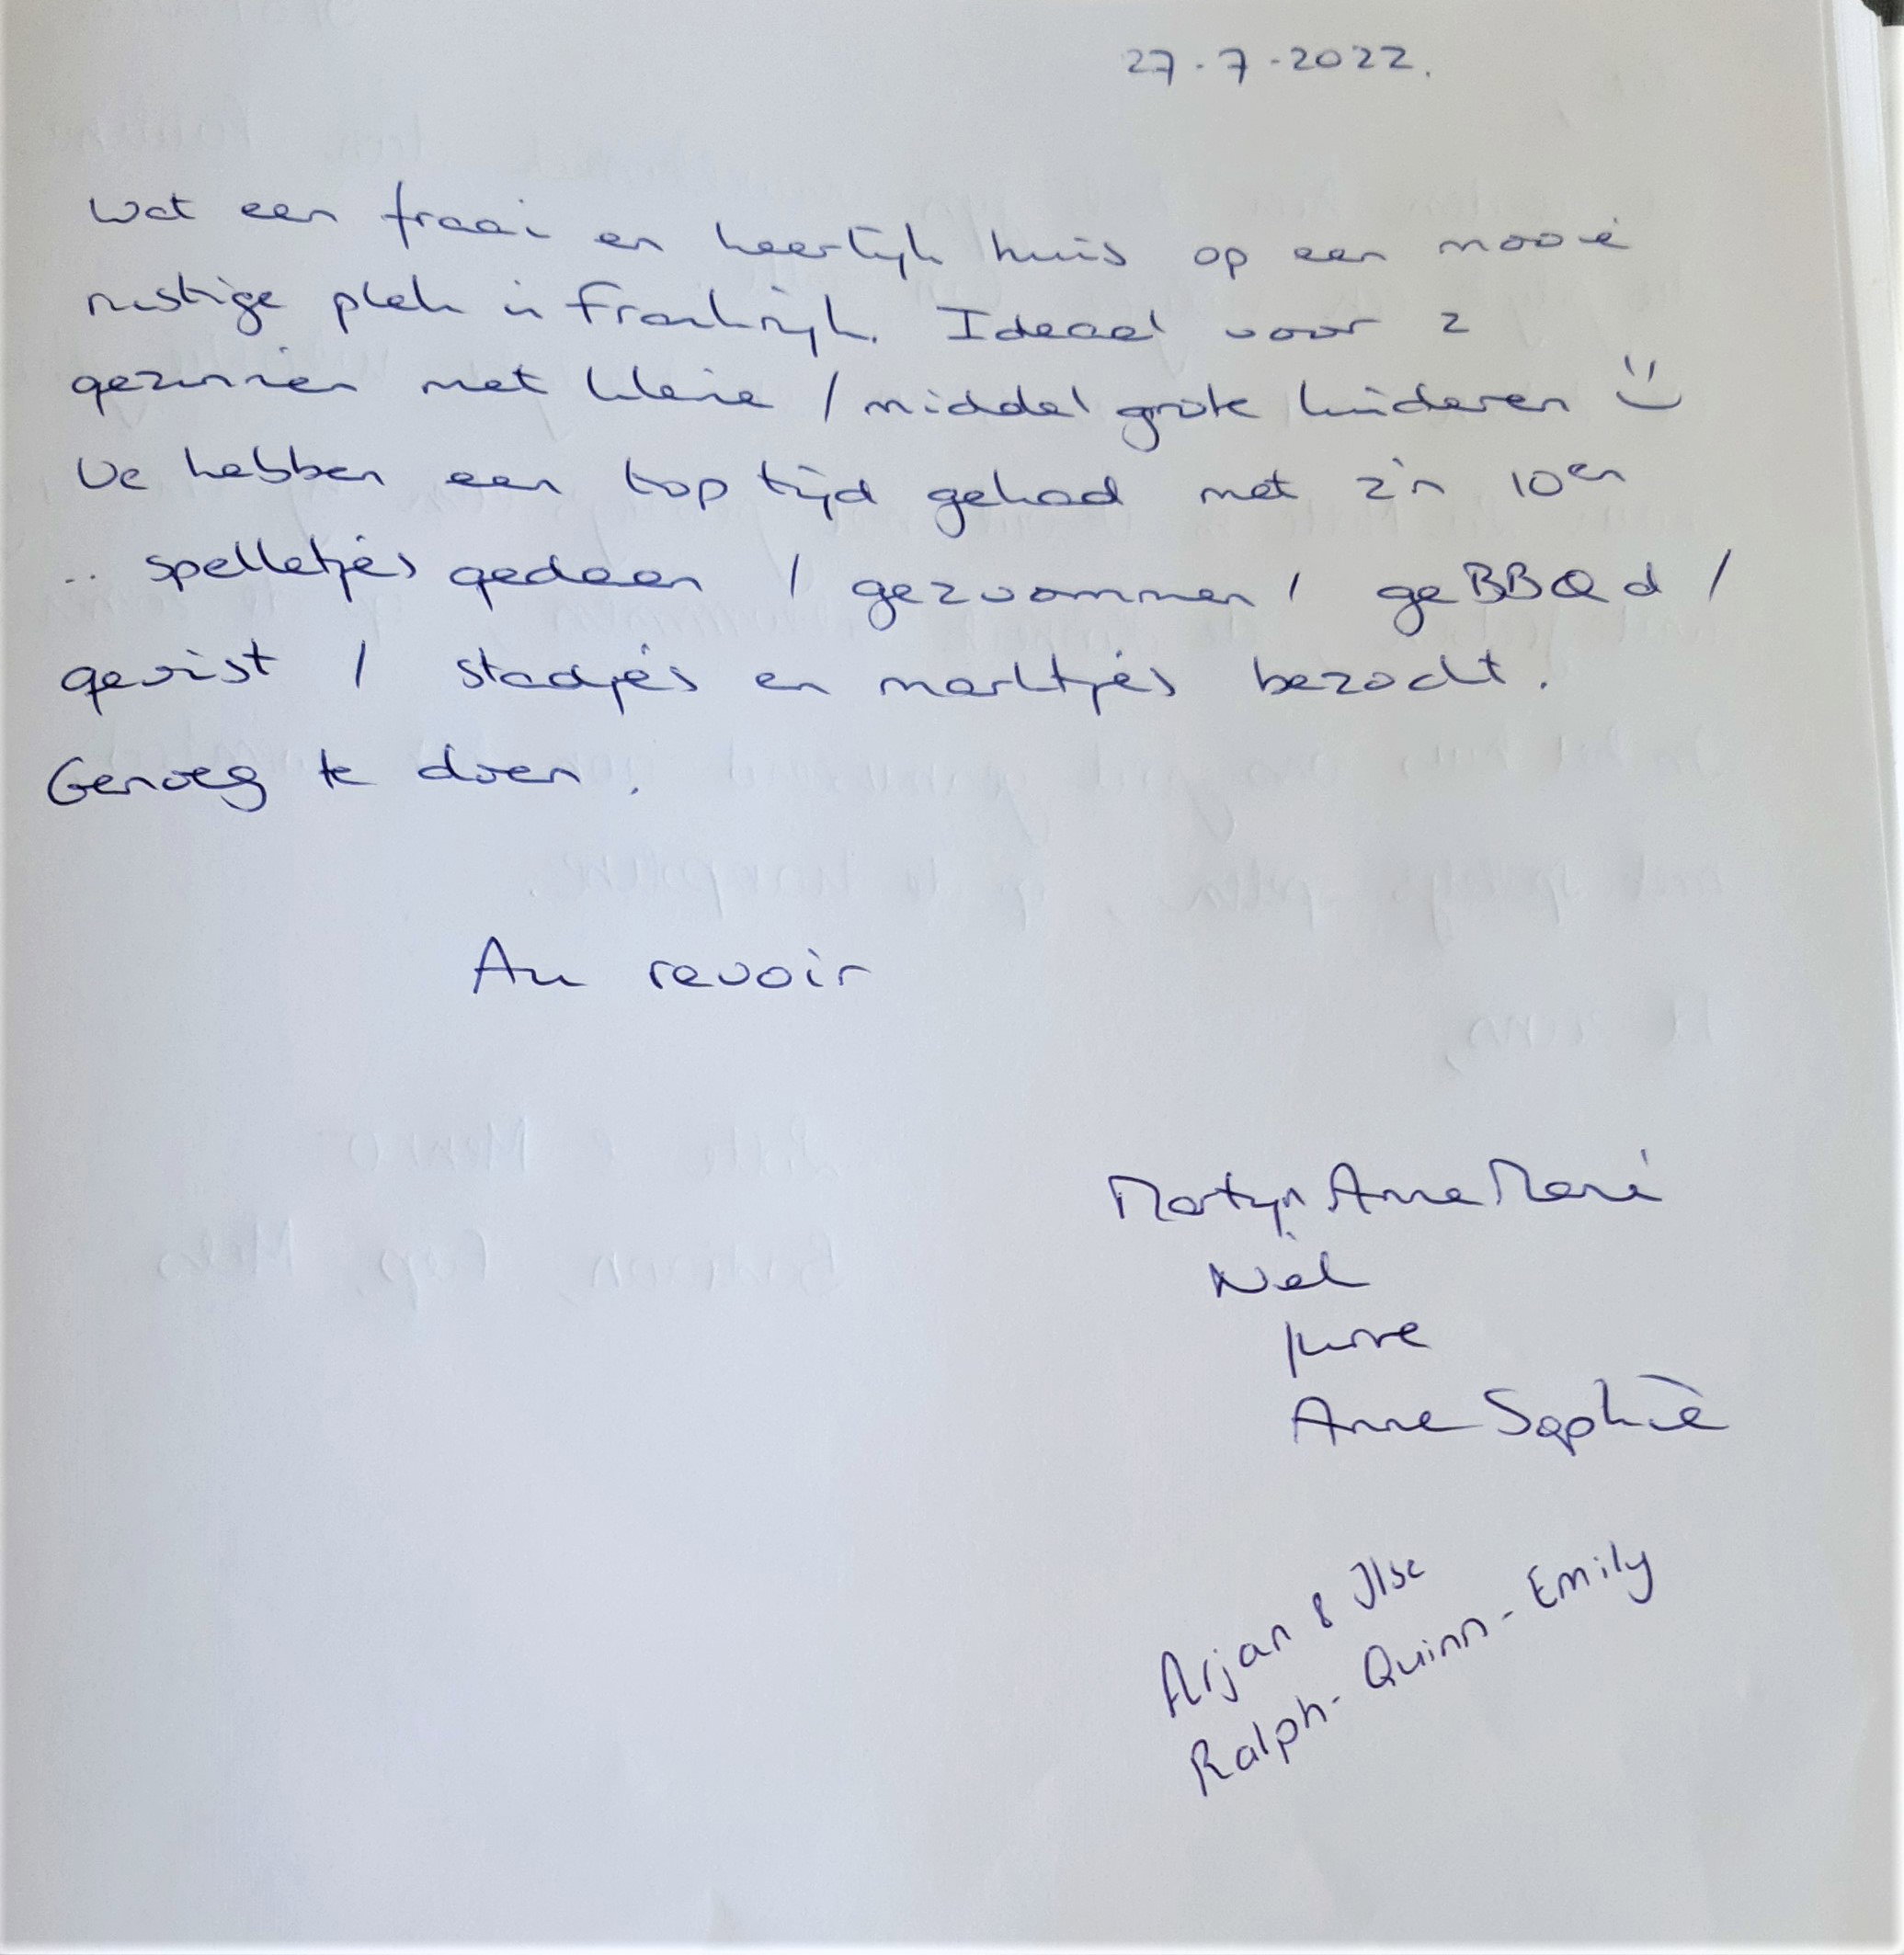 27-7-2022.
Wat een fraai en heerlijk huis op een mooie
rustige plek in Frankrijk. Ideaal voor 2
gezinnen met kleine / middel grote kinderen :)
We hebben een top tijd gehad met z'n 10en
.. spelletjes gedaan / gezwommen / geBBQd /
gevist / stadjes en marktjes bezocht.
Genoeg te doen.
Au revoir
Martijn AnneMarie
Niek
Anne Sophie
Arjan & Ilse
Ralph - Quinn - Emily